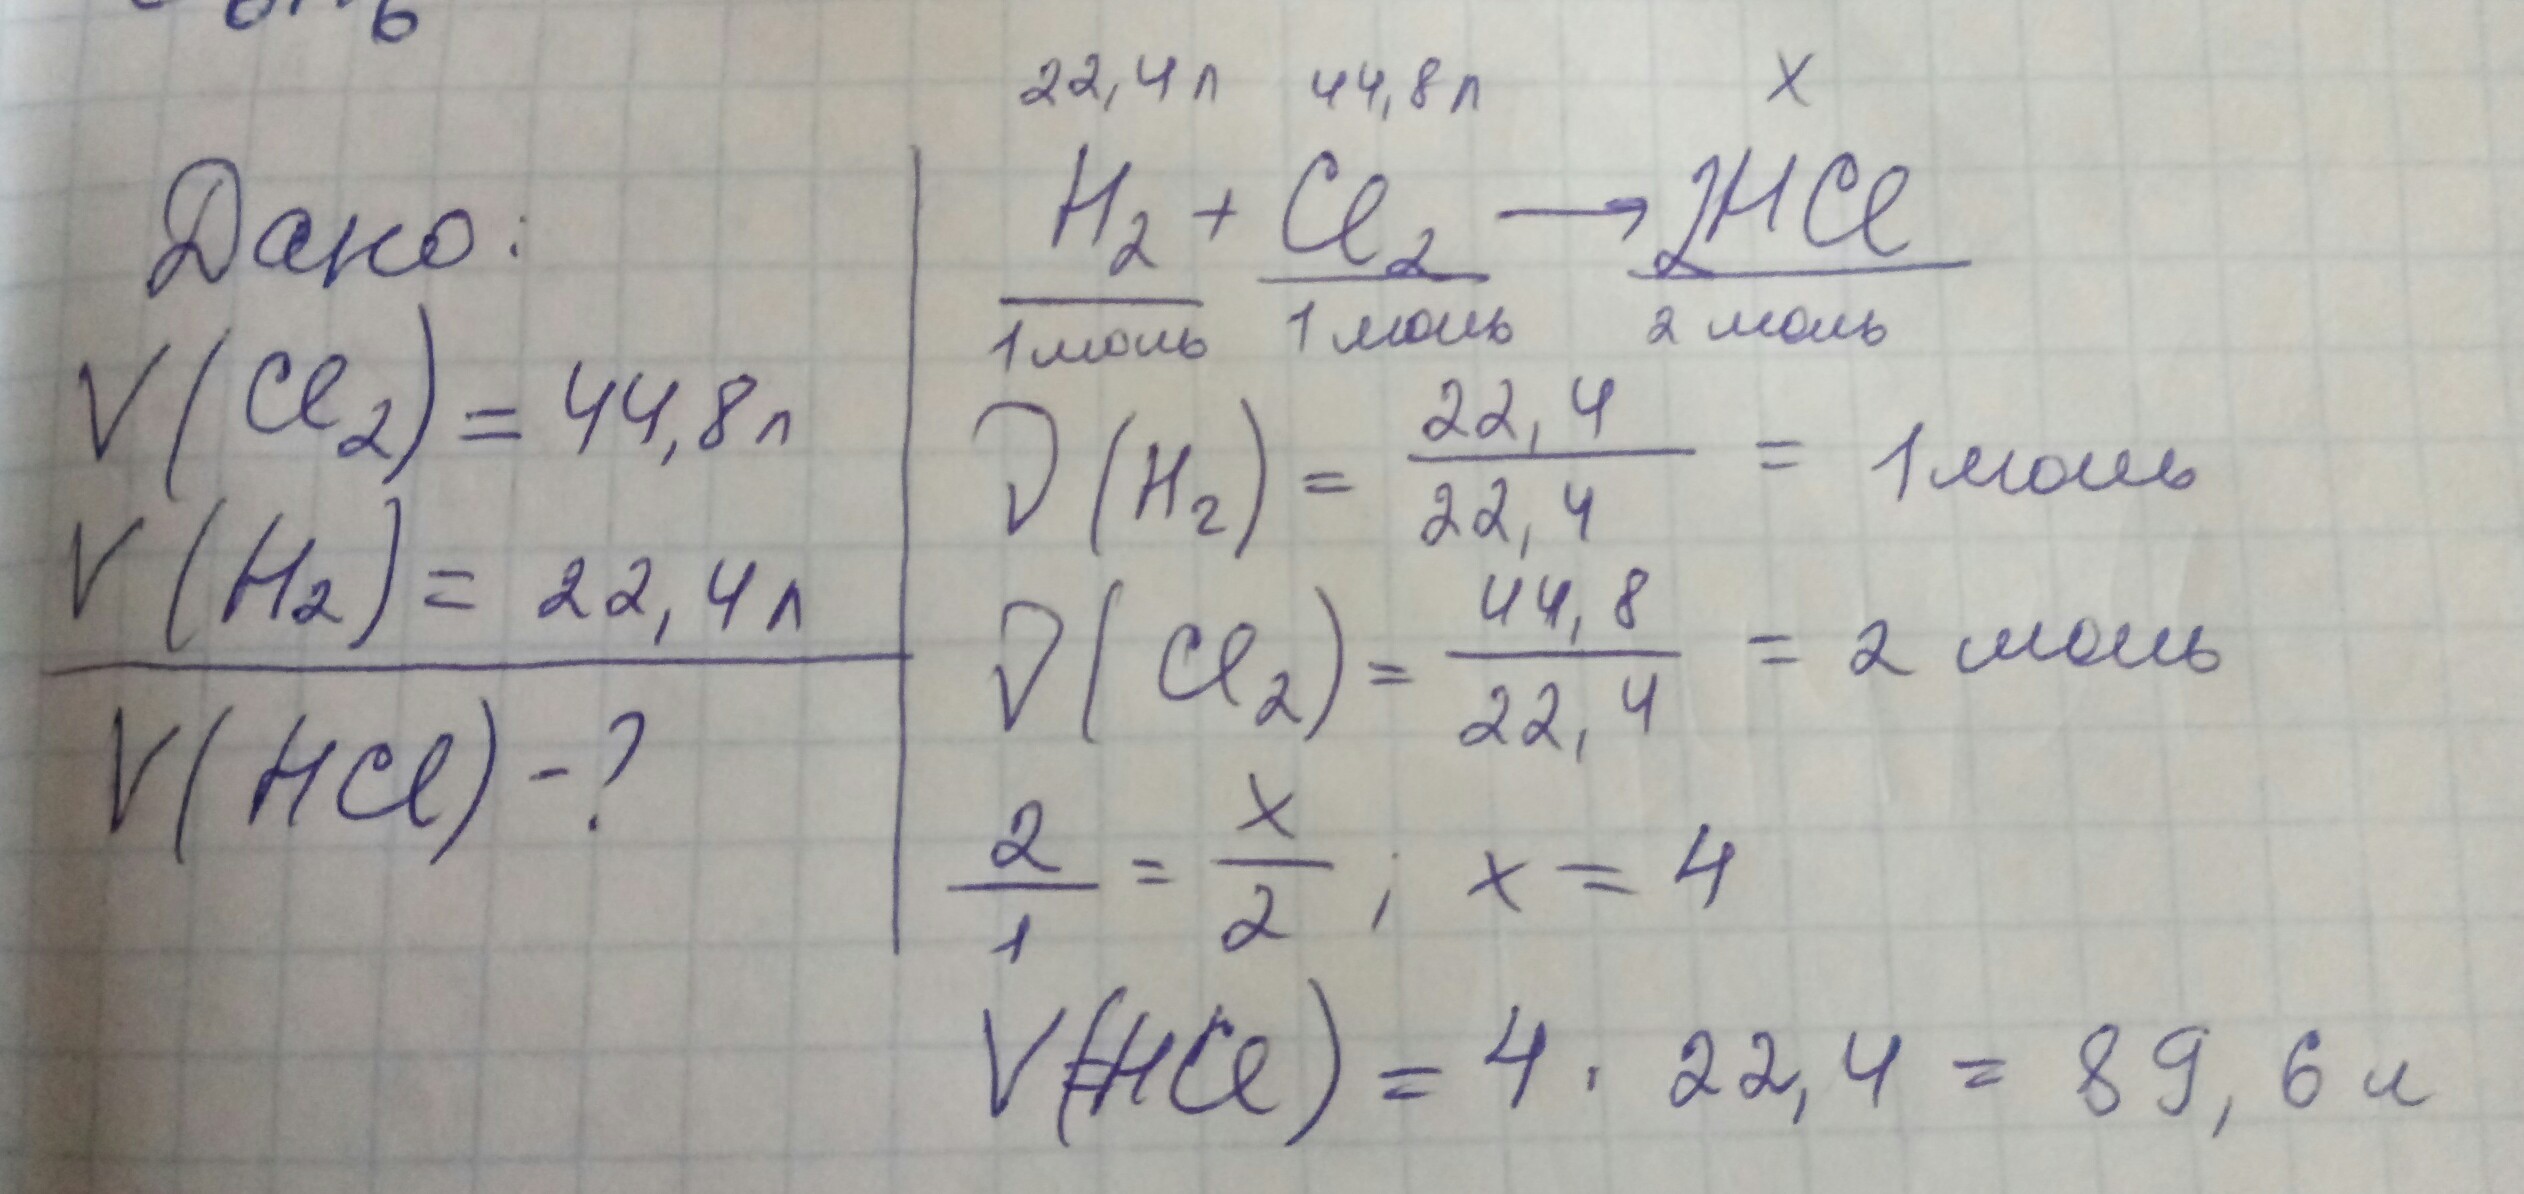 Дано:
V(Cl2) = 44,8л
V(H2) = 22,4л
V(HCl) - ?
22,4л 44,8л x
H2 + Cl2 → 2HCl
1 моль 1 моль 2 моль
ν(H2) = 22,4/22,4 = 1 моль
ν(Cl2) = 44,8/22,4 = 2 моль
2/1 = x/2 ; x = 4
V(HCl) = 4 · 22,4 = 89,6 л